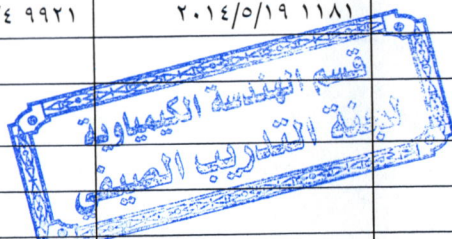 ١١٨١ ٢٠١٤/٥/١٩
٩٩٢١
قسم الهندسة الكيمياوية
لجنة التدريب الصيفي